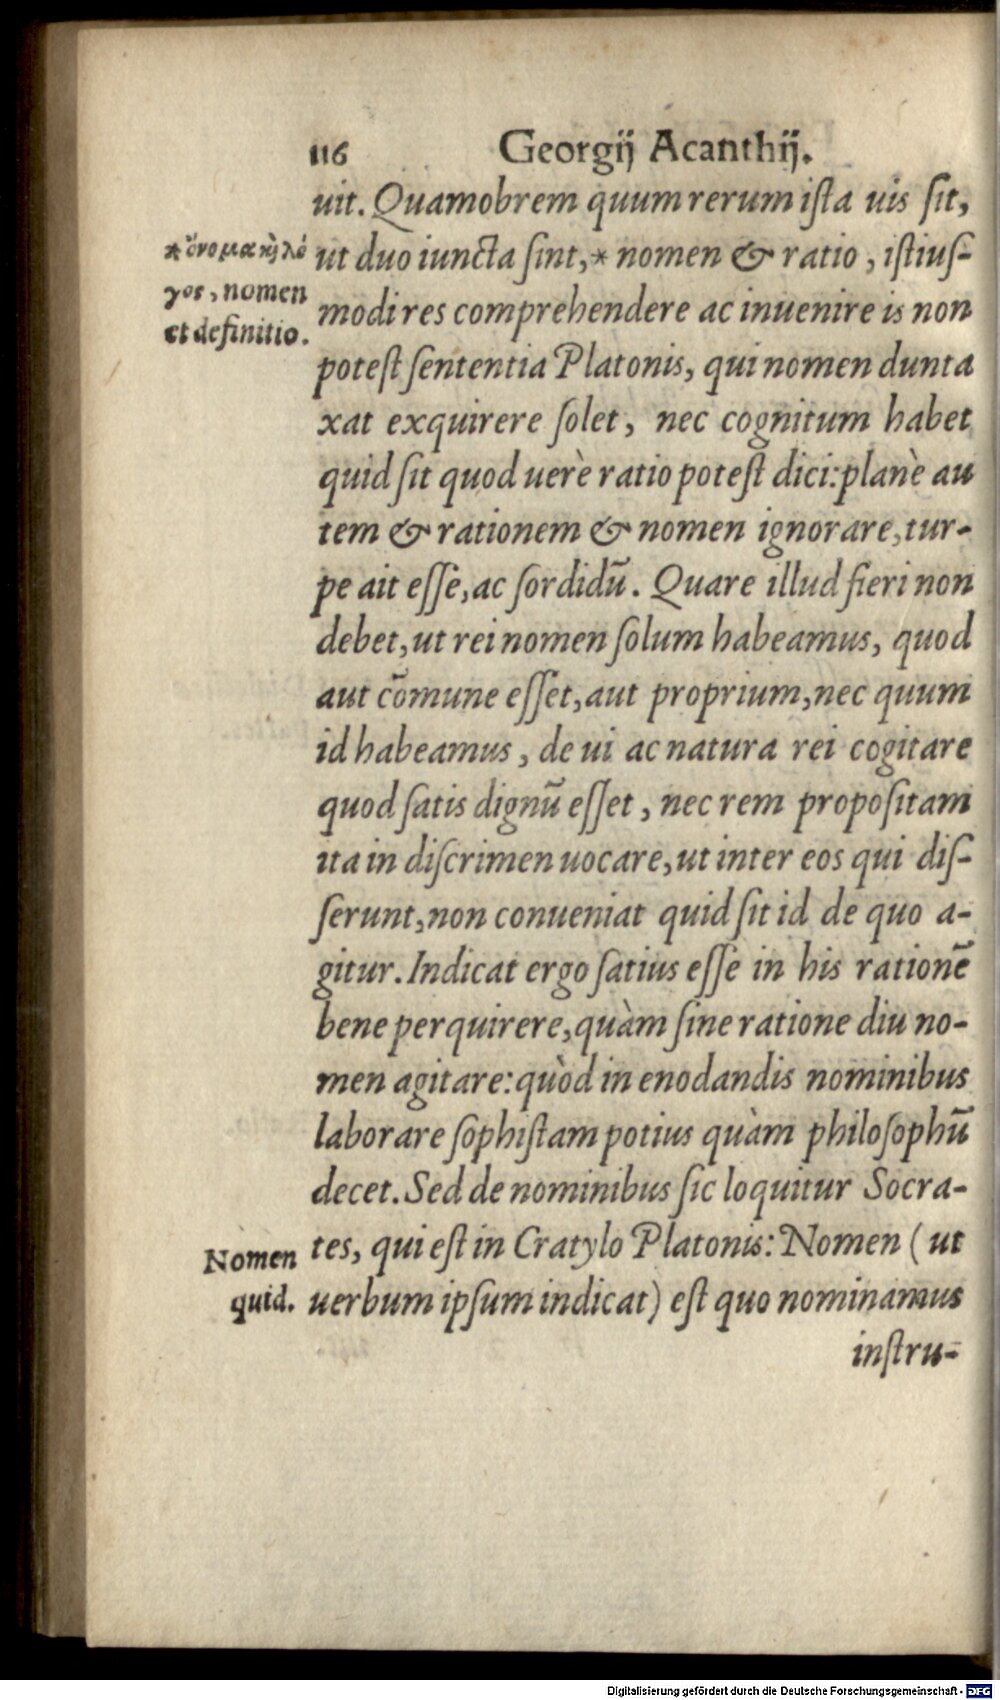 116 Georgij Acanthij.
uit. Quamobrem quum rerum ista uis sit,
*ὄνομα κὶ λό
γος, nomen
et definitio.
ut duo iuncta sint,* nomen & ratio, istius-
modi res comprehendere ac inuenire is non
potest sententia Platonis, qui nomen dunta
xat exquirere solet, nec cognitum habet
quid sit quod uerè ratio potest dici: planè au
tem & rationem & nomen ignorare, tur-
pe ait esse, ac sordidū. Quare illud fieri non
debet, ut rei nomen solum habeamus, quod
aut cōmune esset, aut proprium, nec quum
id habeamus, de ui ac natura rei cogitare
quod satis dignū esset, nec rem propositam
ita in discrimen uocare, ut inter eos qui dis-
serunt, non conueniat quid sit id de quo a-
gitur. Indicat ergo satius esse in his rationē
bene perquirere, quàm sine ratione diu no-
men agitare: quòd in enodandis nominibus
laborare sophistam potius quàm philosophū
decet. Sed de nominibus sic loquitur Socra-
Nomen
quid.
tes, qui est in Cratylo Platonis: Nomen (ut
uerbum ipsum indicat) est quo nominamus
instru-
Digitalisierung gefördert durch die Deutsche Forschungsgemeinschaft - DFG